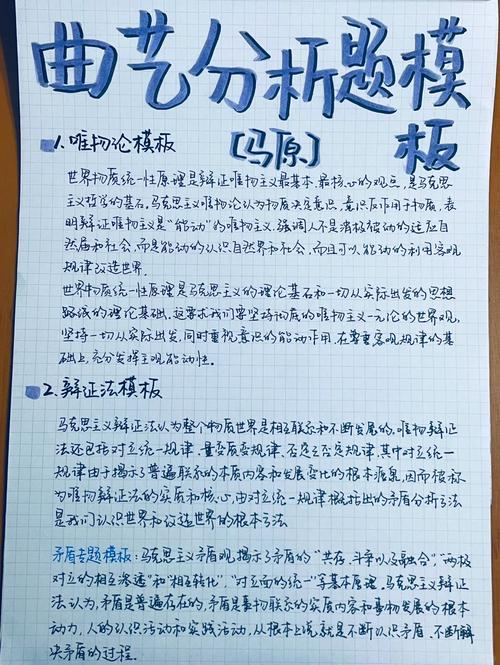 曲艺分析题模
板
[马原]
1.唯物论模板
世界物质统一性原理是辩证唯物主义最基本、最核心的观点，是马克思
主义哲学的基石。马克思主义唯物论认为物质决定意识，意识反作用于物质，表
明辩证唯物主义是“能动”的唯物主义，强调人不是消极被动的适应自
然届和社会，而是能动的认识自然界和社会，而且可以能动的利用客观
规律改造世界.
世界物质统一性原理是马克思主义的理论基石和一切从实际出发的思想
路线的理论基础，这要求我们要坚持物质的唯物主义一元论的世界观，
坚持一切从实际出发，同时重视意识的能动作用，在尊重客观规律的基
础上，充分发挥主观能动性。
2.辩证法模板
马克思主义辩证法认为整个物质世界是相互联系和不断发展的，唯物辩证
法还包括对立统一规律、量变质变规律、否定之否定规律，其中对立统一
规律由于揭示了普遍联系的本质内容和发展变化的根本源泉，因而被称
为唯物辩证法的实质和核心，由对立统一规律概括出的矛盾分析方法
是我们认识世界和改造世界的根本方法
矛盾专题模板：马克思主义矛盾观揭示了矛盾的“共存、斗争以及融合”，“两极
对立的相互渗透”和“相互转化”，“对立面的统一”等基本原理，马克思主义辩证
法认为，矛盾是普遍存在的，矛盾是事物联系的实质内容和事物发展的根本
动力，人的认识活动和实践活动，从根本上说就是不断认识矛盾、不断解
决矛盾的过程.